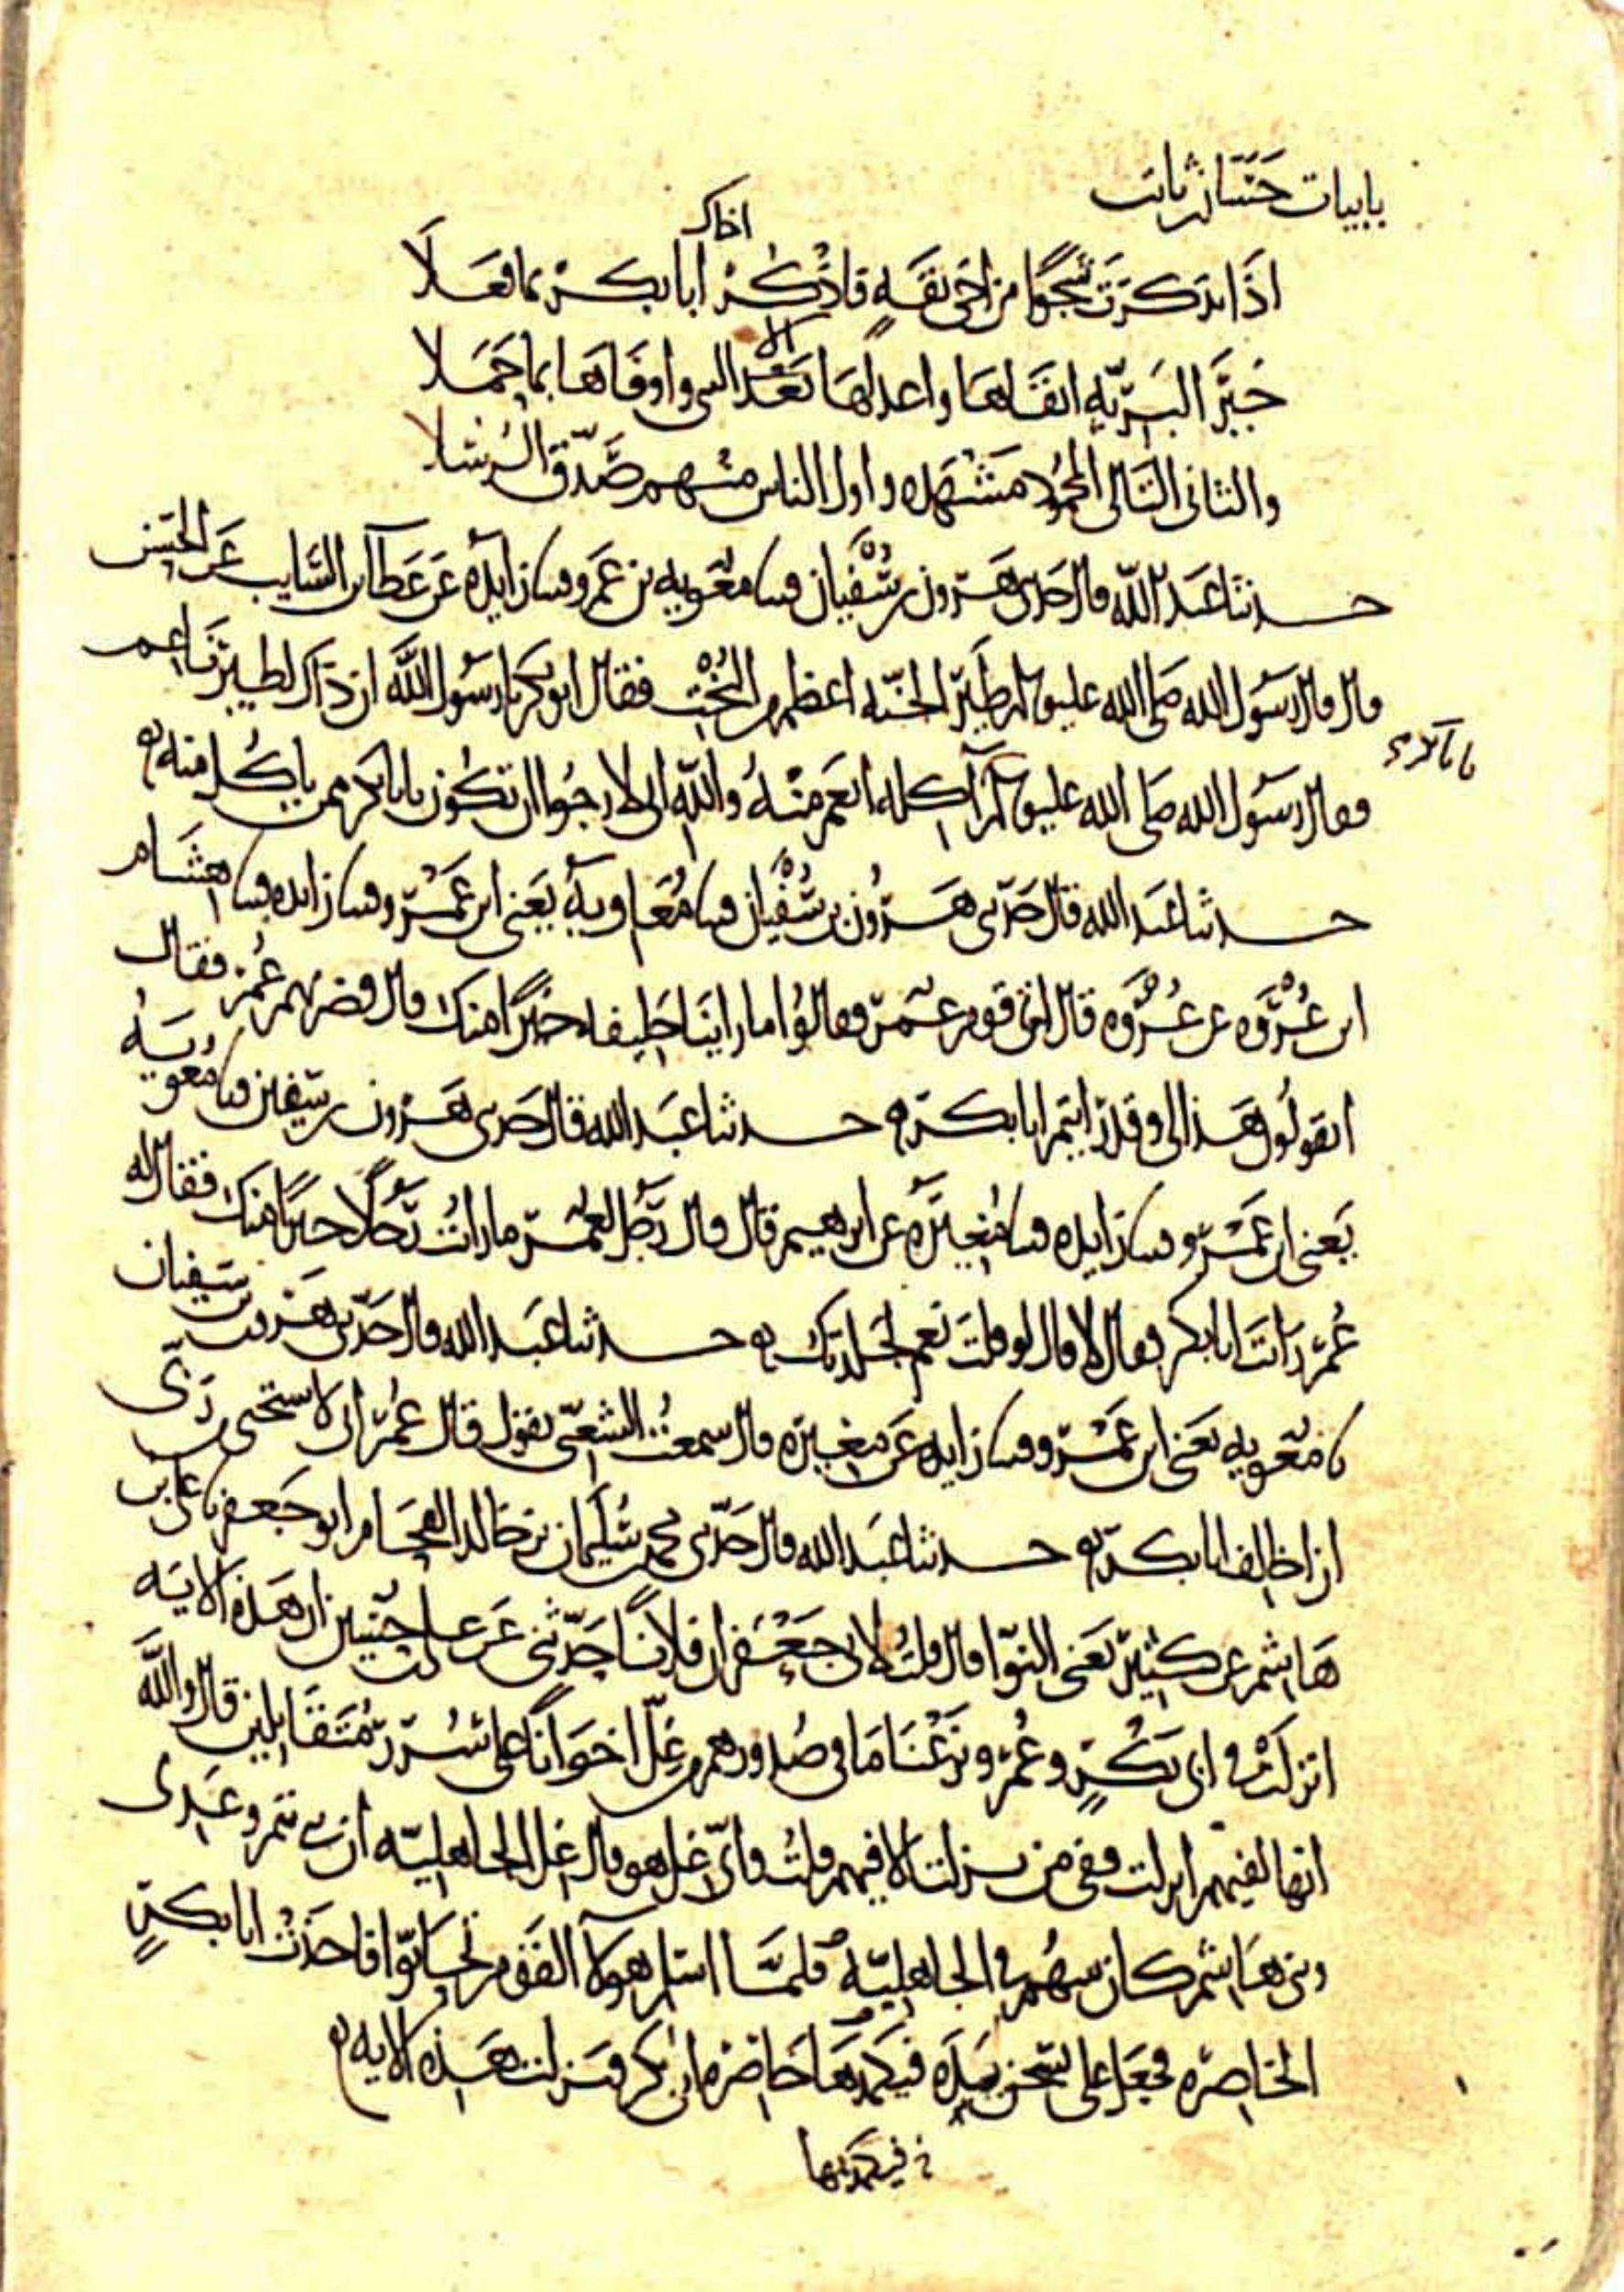 بابيات حسان بن ثابت
اخاك
اذا تذكرت شجوا من اخي ثقة فاذكر ابا بكر بما فعلا
خير البرية اتقاها واعدلها بعد النبي واوفاها بما حملا
والثاني التالي المحمود مشهده واول الناس منهم صدق الرسلا
حدثنا عبد الله قال حدثني هرون بن سفيان قثنا معوية بن عمرو قثنا زايدة عن عطا بن السايب عن الحسن
قال قال رسول الله صلى الله عليه وسلم ان طير الجنة اعظم من البخت فقال ابو بكر يا رسول الله ان ذاك لطير ناعم
فقال رسول الله صلى الله عليه وسلم آكله انعم منه والله اني لارجوا ان تكون يا با بكر ممن ياكل منه
حدثنا عبد الله قال حدثني هرون بن سفيان قثنا معاوية يعني ابن عمرو قثنا زايدة قثنا هشام
ابن عروة عن عروة قال اتى قوم عمر فقالوا ما راينا خليفة خيرا منك قال فضربهم عمر فقال
اتقولون هذا لي وقد رايتم ابا بكر حدثنا عبد الله قال حدثني هرون بن سفين قثنا معوية
يعني ابن عمرو قثنا زايدة قثنا مغيرة عن ابرهيم قال قال رجل لعمر ما رايت رجلا خيرا منك فقال له
عمر رايت ابا بكر فقال لا قال لو قلت نعم لجلدتك حدثنا عبد الله قال حدثني هرون بن سفيان
نا معوية يعني ابن عمرو قثنا زايدة عن مغيرة قال سمعت الشعبي يقول قال عمر اني لاستحيي ربي
ان اخالف ابا بكر حدثنا عبد الله قال حدثني محمد بن سليمان بن خالد الفحام ابو جعفر نا علي بن
هاشم عن كثير يعني النوا قال قلت لابي جعفر ان فلانا حدثني عن علي بن حسين ان هذه الاية
انزلت في ابي بكر وعمر ونزعنا ما في صدورهم من غل اخوانا على سرر متقابلين قال والله
انها لفيهم انزلت وفي من نزلت الا فيهم قلت واي غل هو قال غل الجاهلية ان بني تيم وعدي
وبني هاشم كان بينهم في الجاهلية فلما اسلم هولا القوم تحابوا فاخذت ابا بكر
الخاصرة فجعل علي يسخن يده فيكمد بها خاصرة ابي بكر فنزلت هذه الاية
فيكمد بها